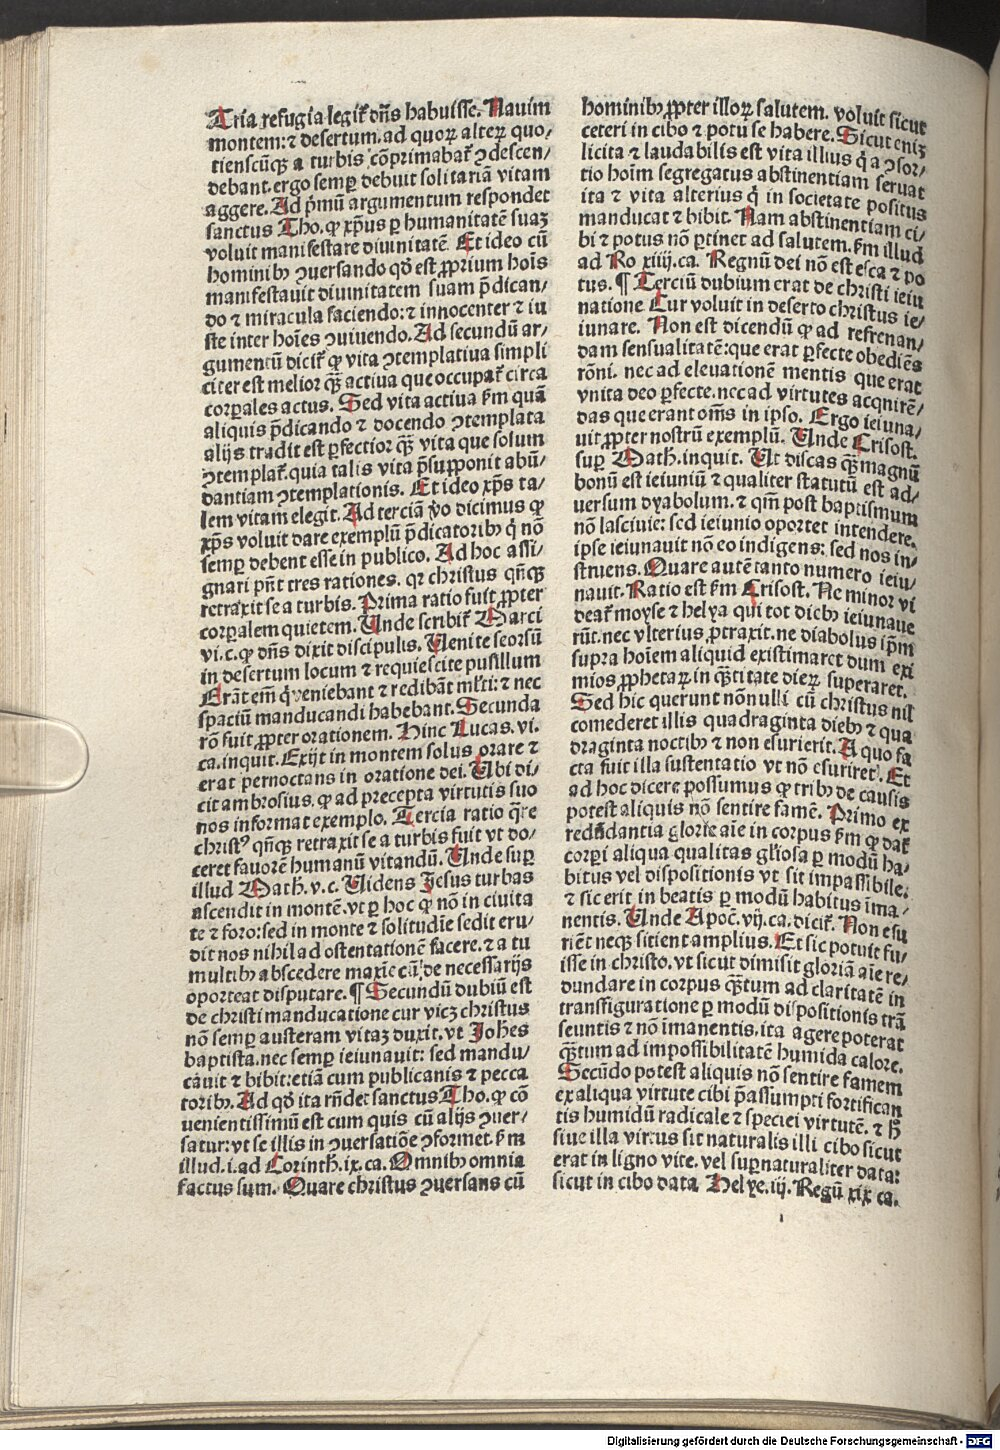 Tria refugia legit᷑ dn̄s habuisse. Nauim
montem: ⁊ desertum. ad quoꝝ alteꝝ quo/
tienscūqꝫ a turbis cōprimabat᷑ ꝯdescen/
debant. ergo semꝑ debuit solitariā vitam
aggere. Ad p̄mū argumentum respondet
sanctus Tho. ꝙ xp̄us ꝑ humanitatē suaꝫ
voluit manifestare diuinitatē. Et ideo cū
hominibꝫ ꝯuersando qđ est ꝓprium hoīs
manifestauit diuinitatem suam p̄dican/
do ⁊ miracula faciendo: ⁊ innocenter ⁊ iu
ste inter hoīes ꝯuiuendo. Ad secundū ar/
gumentū dicit᷑ ꝙ vita ꝯtemplatiua simpli
citer est melior qꝫ̄ actiua que occupat᷑ circa
corꝑales actus. Sed vita actiua ẜm quā
aliquis p̄dicando ⁊ docendo ꝯtemplata
alijs tradit est ꝑfectior qꝫ̄ vita que solum
ꝯtemplat᷑. quia talis vita p̄supponit abū/
dantiam ꝯtemplationis. Et ideo xp̄s ta/
lem vitam elegit. Ad terciā v̊o dicimus ꝙ
xp̄s voluit dare exemplū p̄dicatoribꝫ q̇ nō
semꝑ debent esse in publico. Ad hoc assi/
gnari pn̄t tres rationes. qꝛ christus qn̄qꝫ
retraxit se a turbis. Prima ratio fuit ꝓpter
corꝑalem quietem. Unde scribit᷑ Marci
vi. c. ꝙ dn̄s dixit discipulis. Uenite seorsū
in desertum locum ⁊ requiescite pusillum
Erāt em̄ q̇ veniebant ⁊ redibāt ml̄ti: ⁊ nec
spaciū manducandi habebant. Secunda
rō fuit ꝓpter orationem. Hinc Lucas. vi.
ca. inquit. Exijt in montem solus orare ⁊
erat pernoctans in oratione dei. Ubi di/
cit ambrosius. ꝙ ad precepta virtutis suo
nos informat exemplo. Tercia ratio q̄re
christꝰ qn̄qꝫ retraxit se a turbis fuit vt do/
ceret fauorē humanū vitandū. Unde suꝑ
illud Math. v. c. Uidens Jesus turbas
ascendit in montē. vt ꝑ hoc ꝙ nō in ciuita
te ⁊ foro: sed in monte ⁊ solitudīe sedit eru/
dit nos nihil ad ostentationē facere. ⁊ a tu
multibꝫ abscedere maxīe cū de necessarijs
oporteat disputare. ¶ Secundū dubiū est
de christi manducatione cur vicꝫ christus
nō semꝑ austeram vitaꝫ duxit. vt Joh̄es
baptista. nec semꝑ ieiunauit: sed mandu/
cauit ⁊ bibit: etiā cum publicanis ⁊ pecca
toribꝫ. Ad qđ ita rn̄det sanctus Tho. ꝙ cō
uenientissimū est cum quis cū alijs ꝯuer/
satur: vt se illis in ꝯuersatiōe ꝯformet. ẜm
illud. i. ad Corinth̄. ix. ca. Omnibꝫ omnia
factus sum. Quare christus ꝯuersans cū
hominibꝫ ꝓpter illoꝝ salutem. voluit sicut
ceteri in cibo ⁊ potu se habere. Sicut eniꝫ
licita ⁊ laudabilis est vita illius q̇ a ꝯsor/
tio hoīm segregatus abstinentiam seruat
ita ⁊ vita alterius q̇ in societate positus
manducat ⁊ bibit. Nam abstinentiam ci/
bi ⁊ potus nō ꝑtinet ad salutem. ẜm illud
ad Ro xiiij. ca. Regnū dei nō est esca ⁊ po
tus. ¶ Terciū dubium erat de christi ieiu
natione Cur voluit in deserto christus ie/
iunare. Non est dicendū ꝙ ad refrenan/
dam sensualitatē: que erat ꝑfecte obediēs
rōni. nec ad eleuationē mentis que erat
vnita deo ꝑfecte. nec ad virtutes acqnirē/
das que erant om̄s in ipso. Ergo ieiuna/
uit ꝓpter nostrū exemplū. Unde Crisost.
suꝑ Math. inquit. Ut discas qꝫ̄ magnū
bonū est ieiuniū ⁊ qualiter statutū est ad/
uersum dyabolum. ⁊ qm̄ post baptismum
nō lasciuie: sed ieiunio oportet intendere.
ipse ieiunauit nō eo indigens: sed nos in/
struens. Quare autē tanto numero ieiu/
nauit. Ratio est ẜm Crisost. Ne minor vi
deat᷑ moyse ⁊ helya qui tot diebꝫ ieiunaue
rūt. nec vlterius ꝓtraxit. ne diabolus ip̄m
supra hoīem aliquid existimaret dum exi
mios ꝓphetaꝝ in qꝫ̄titate dieꝝ superaret.
Sed hic querunt nōnulli cū christus nil
comederet illis quadraginta diebꝫ ⁊ qua
draginta noctibꝫ ⁊ non esurierit. A quo fa
cta fuit illa sustentatio vt nō esuriret. Et
ad hoc dicere possumus ꝙ tribꝫ de causis
potest aliquis nō sentire famē. Primo ex
redūdantia glorie aīe in corpus ẜm ꝙ dat᷑
corpi aliqua qualitas gl̄iosa ꝑ modū ha/
bitus vel dispositionis vt sit impassibile:
⁊ sic erit in beatis ꝑ modū habitus īma/
nentis. Unde Apoc̄. vij. ca. dicit᷑. Non esu
riēt neqꝫ sitient amplius. Et sic potuit fu/
isse in christo. vt sicut dimisit gloriā aīe re/
dundare in corpus qꝫ̄tum ad claritatē in
transfiguratione ꝑ modū dispositionis trā
seuntis ⁊ nō īmanentis. ita agere poterat
qꝫ̄tum ad impossibilitatē humida calore.
Secūdo potest aliquis nō sentire famem
ex aliqua virtute cibi p̄assumpti fortifican
tis humidū radicale ⁊ speciei virtutē. ⁊ h̄
siue illa virtus sit naturalis illi cibo sicut
erat in ligno vite. vel suꝑnaturaliter data:
sicut in cibo data Helye. iij. Regū xix ca.
Digitalisierung gefördert durch die Deutsche Forschungsgemeinschaft - DFG